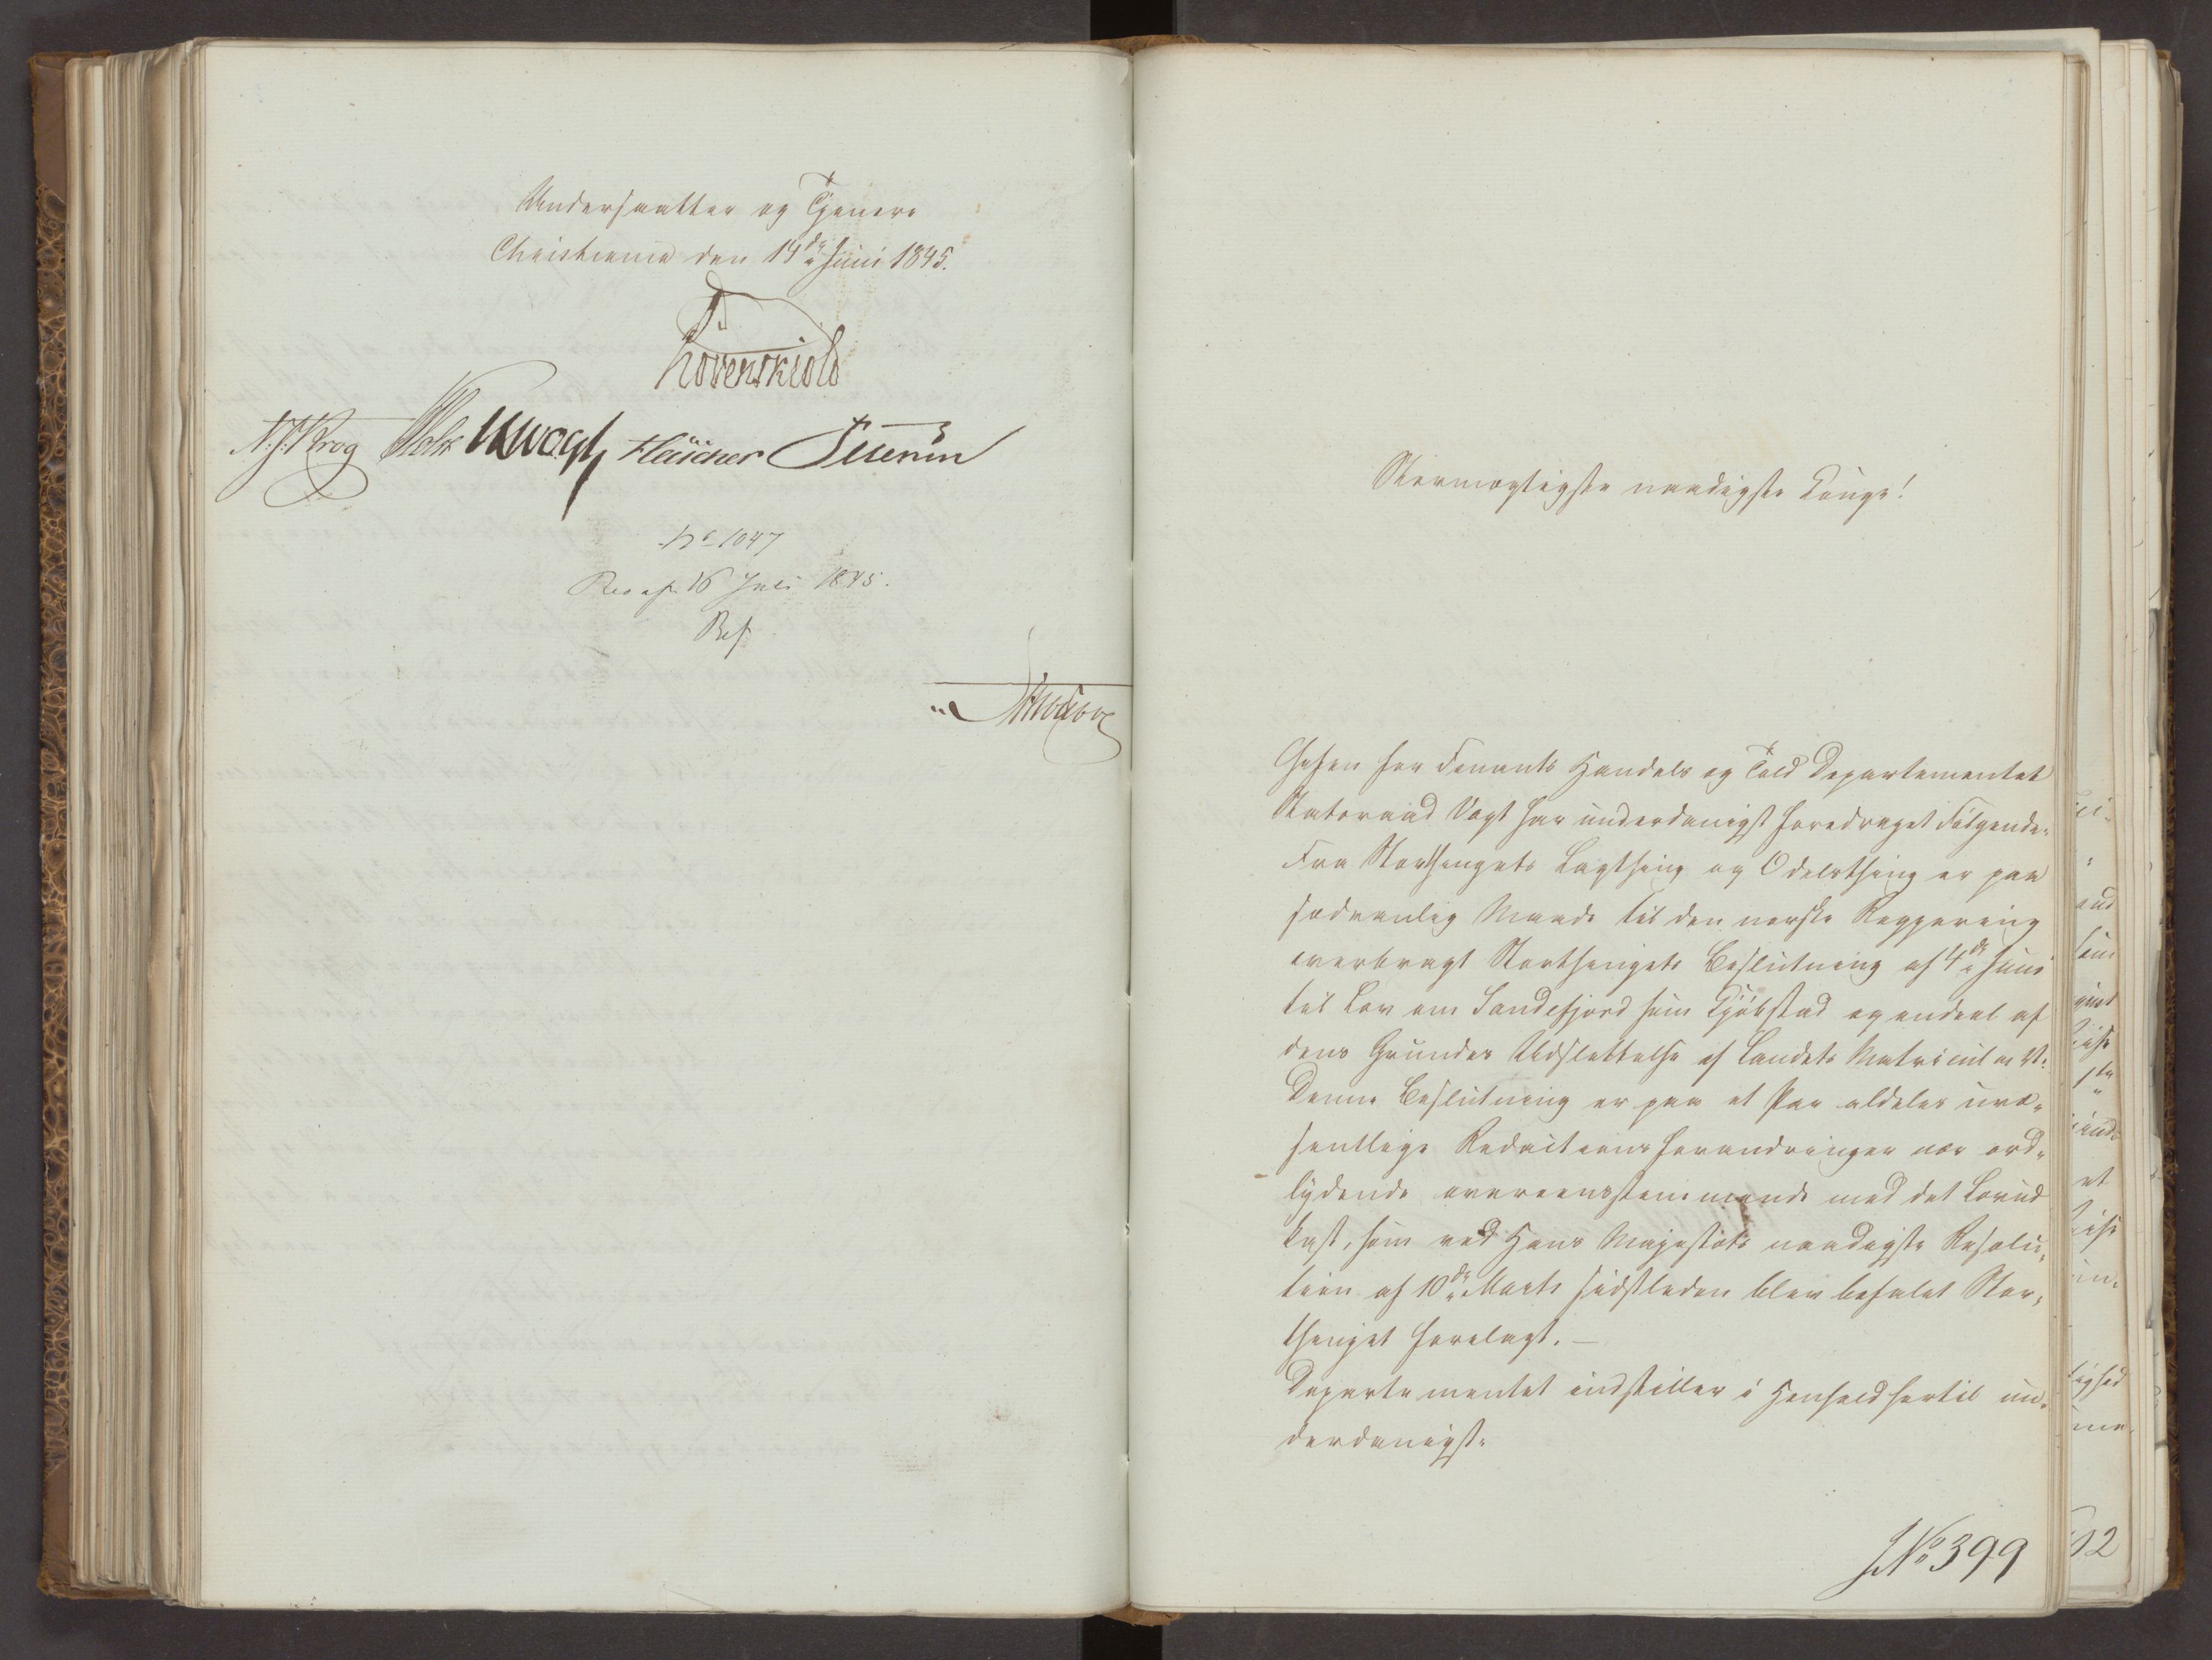 Undersaatter og Tjenere
Christiania den 14de Juni 1845.
Løvenskiold
N. J. Krog Holst Vogt Fleischer Petersen
No 1047
Res. af 16 Juli 1845.
Bef
Stormægtigste naadigste Konge!
Chefen for Finants Handels og Told Departementet
Statsraad Vogt har underdanigst foredraget Følgende:
Fra Storthingets Lagthing og Odelsthing er paa
sædvanlig Maade til den norske Regjering
overbragt Storthingets Beslutning af 4de Juni
til Lov om Sandefjord som Kjøbstad og endeel af
dens Grunders Udslettelse af Landets Matricul m. V.
Denne Beslutning er paa et Par aldeles uvæ-
sentlige Redactions Forandringer nær ord-
lydende overeensstemmende med det Lovud
kast, som ved Hans Majestæts naadigste Resolu-
tion af 10de Marts sidstleden blev befalet Stor-
thinget forelagt. —
Departementet indstiller i Henhold hertil un-
derdanigst:
JNo 399